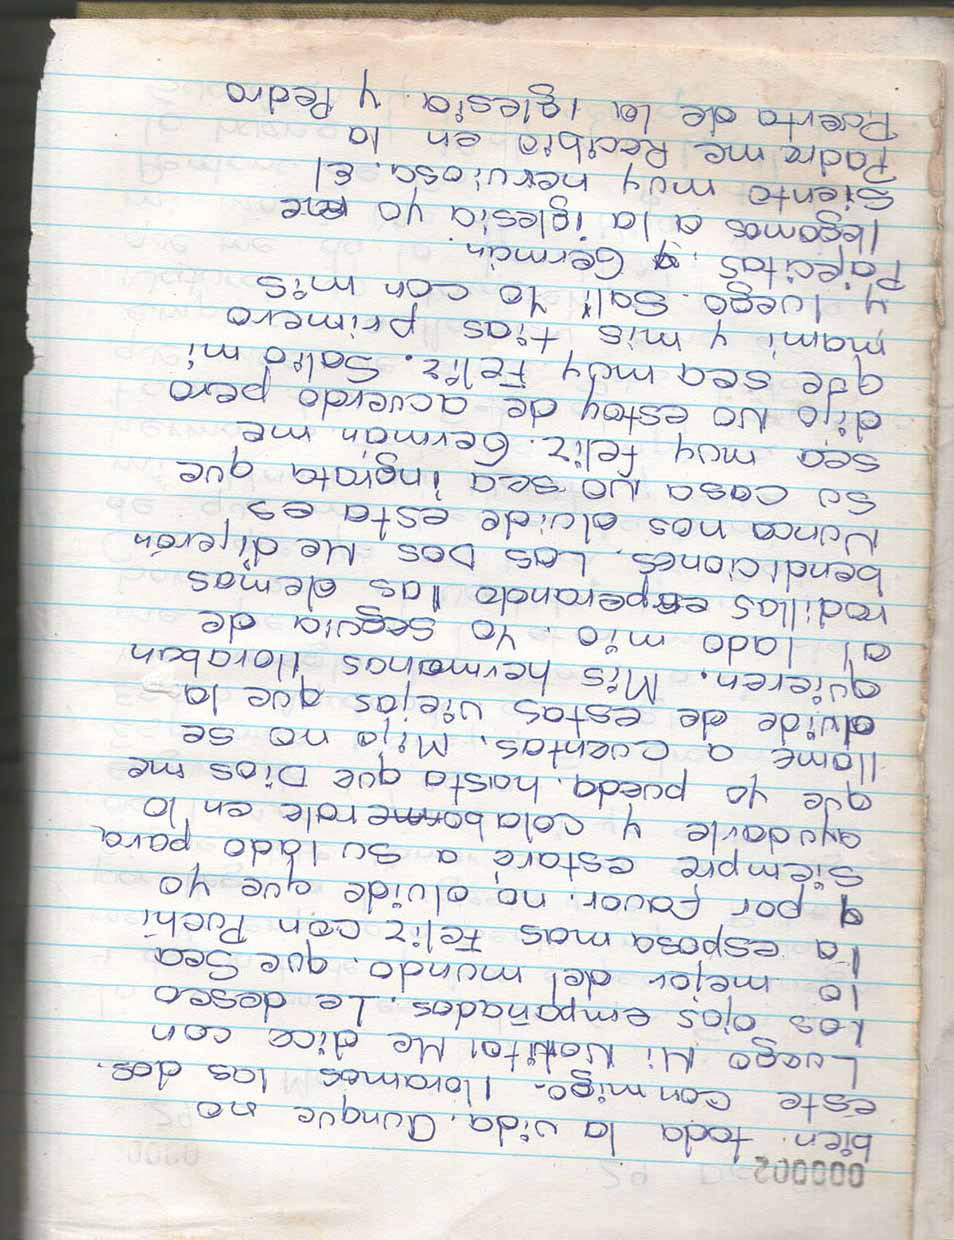 000002
bien toda la vida. Aunque no
este conmigo. lloramos las dos.
Luego Mi Me dice con
Los ojos empañados. Le deseo
lo mejor del mundo. que sea
la esposa mas Feliz con Puchi
y por favor no olvide que yo
siempre estaré a su lado para
ayudarle y colabomerale en lo
que yo pueda, hasta que Dios me
llame a cuentas. Mijo no se
olvide de estas viejas que la
quieren. Mis hermanas lloraban
al lado mio yo seguia de
rodillas esperando las demas
bendiciones. Las Dos Me dijerón
Nunca nos olvide esta es
su casa No sea ingrata que
sea muy feliz. German me
dijo No estoy de acuerdo pero
que sea muy Feliz. Salio mi
mami y mis tias primero
y luego. Sali yo con mis
Papcitas. y Germán.
llegamos a la iglesia yo me
siento muy nerviosa. El
Padre me Recibio en la
Puerta de la iglesia y Pedro